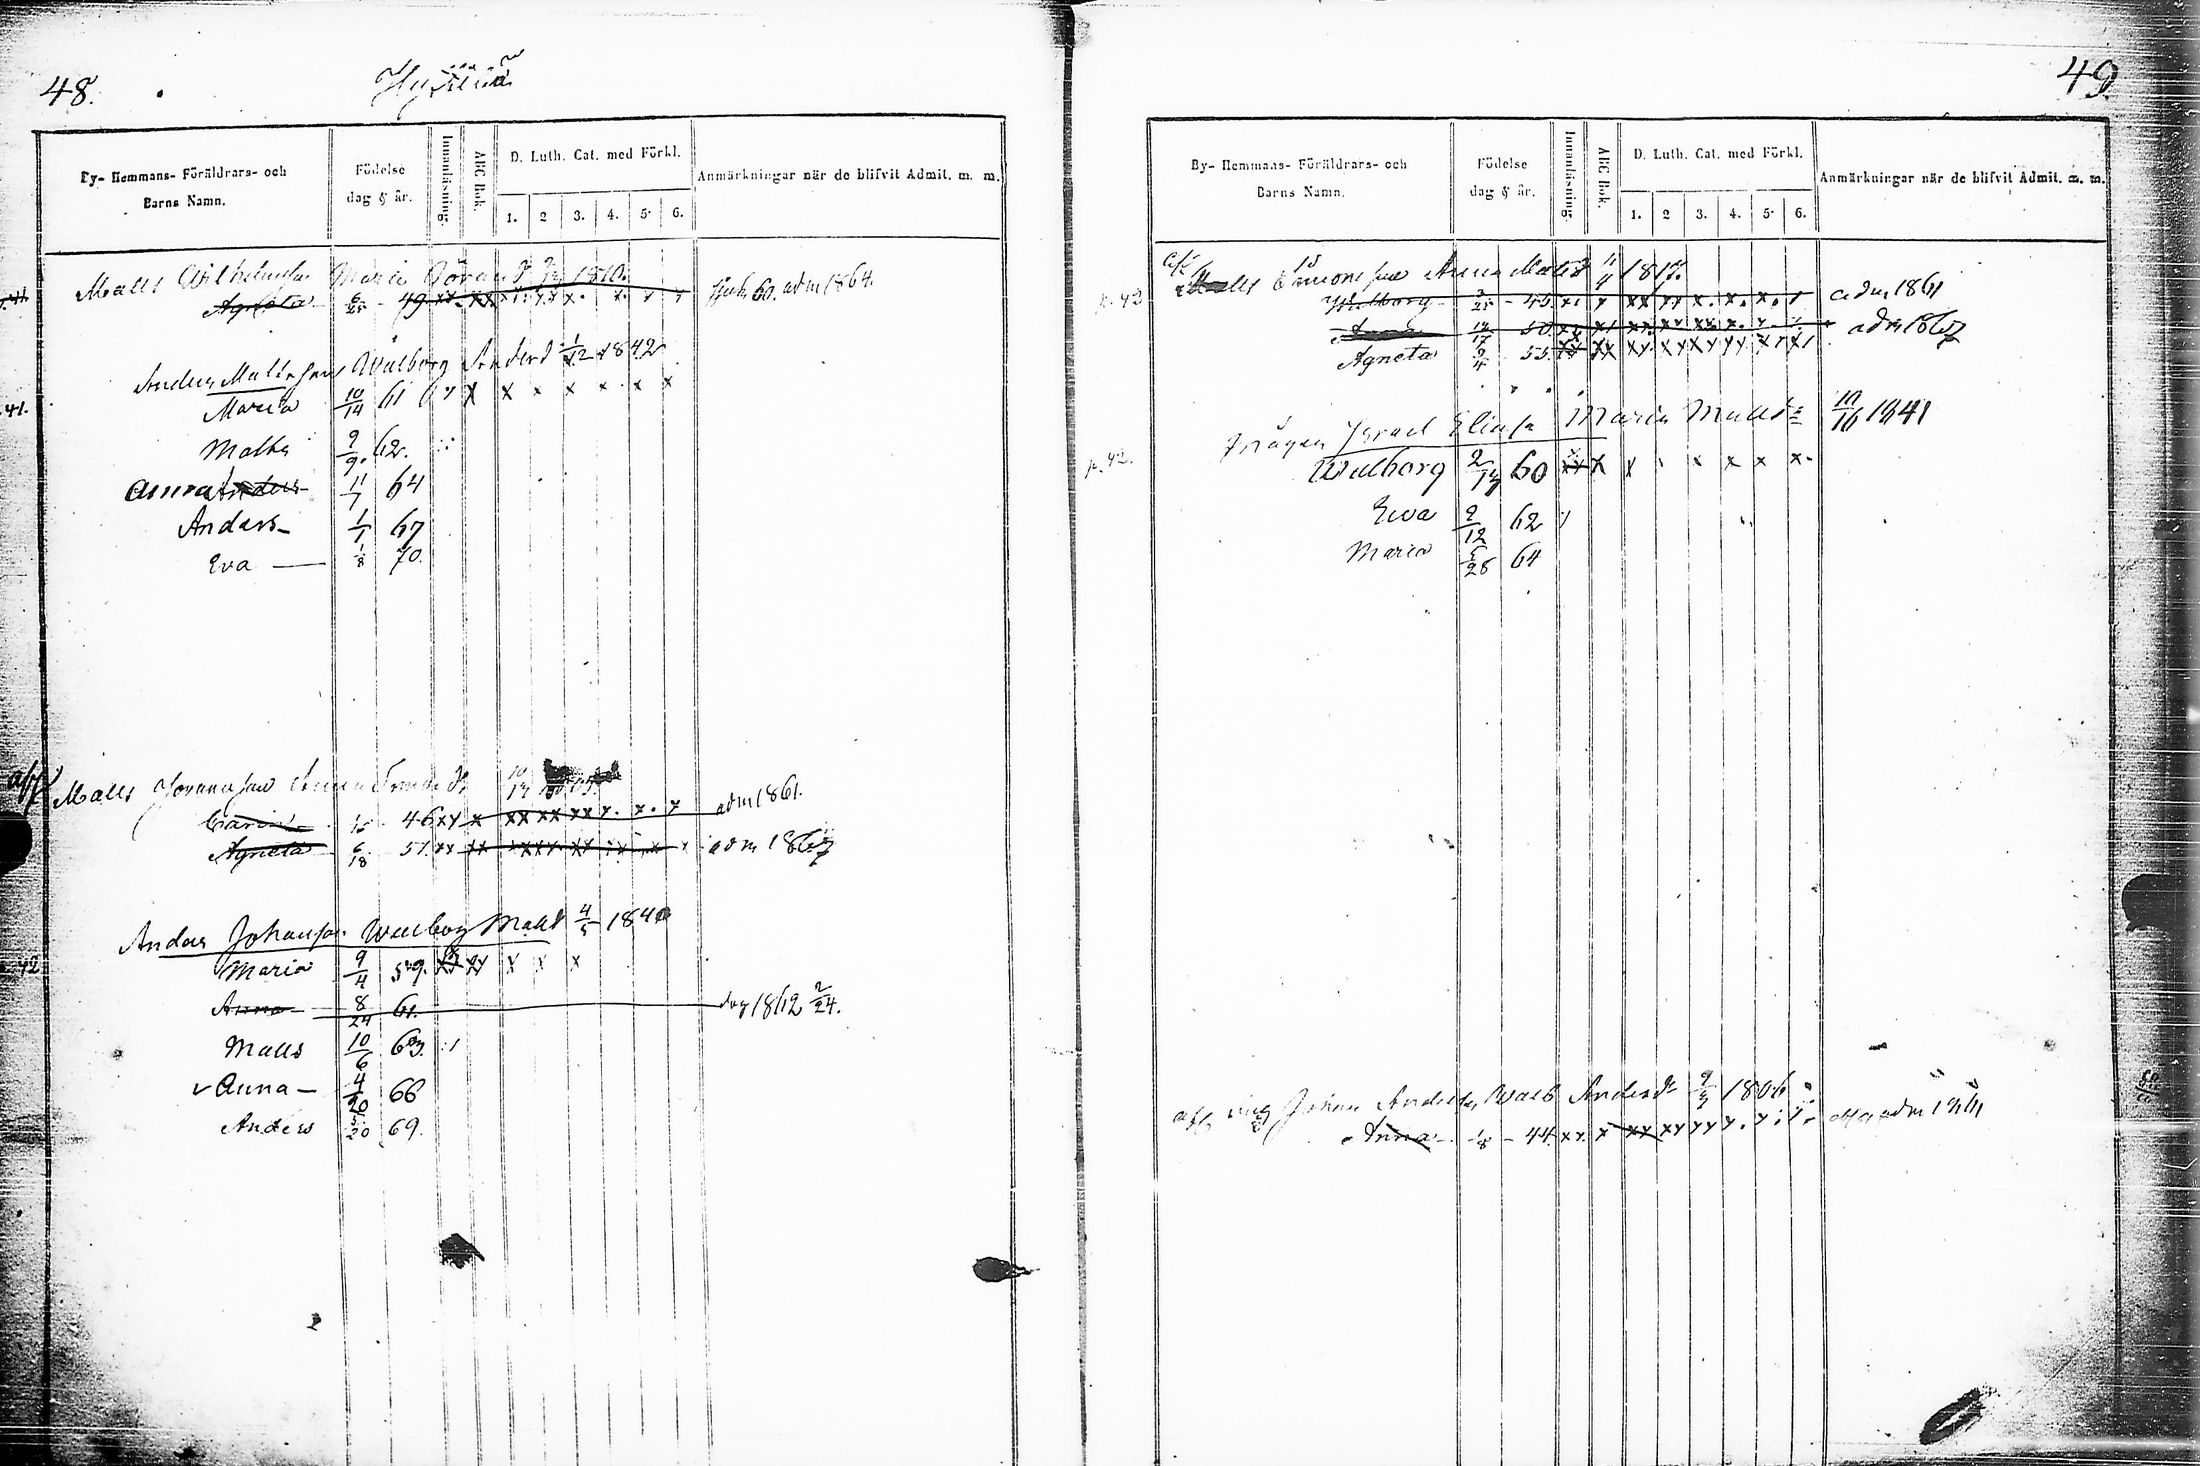 48.
By- Hemmans- Föräldrars- och Barns Namn.
Födelse dag & år.
Innanläsning.
ABC Bok.
D. Luth. Cat. med Förkl.
1. 2 3. 4. 5. 6.
Anmärkningar när de blifvit Admit. m. m.
Matts Wilhelmson Maria Göransd 1810.
Agneta 6/25 - 49 xx. xx x x x x x x sjuk 60. adm 1864.
Anders Mattsson Walborg Andersd 1/12 1842
41. Maria 10/14 61 x x x x x x x
Matts 9/9. 62.
Anna Anders 11/7 64
Anders 1/1 67
Eva 1/8 70.
aff Matts Johansson Anna
Carin 46 xx x xx xx xx x. x. x adm 1861.
Agneta 6/18 51. xx xx adm 1867
Anders Johansson Walborg Mattsd 4/5 1840
42 Maria 9/4 59. xx xx x x x
Anna 8/24 61. dog 1862 2/24.
Matts 10/6 63.
v Anna 4/20 66
Anders 5/20 69.
49
By- Hemmans- Föräldrars- och Barns Namn.
Födelse dag & år.
Innanläsning.
ABC Bok.
D. Luth. Cat. med Förkl.
1. 2 3. 4. 5. 6.
Anmärkningar när de blifvit Admit. m. m.
Matts Simonsson Anna Matsd 11/4 1817.
p. 42 Walborg 3/25 - 45. x x xx xx x. x. x. x adm 1861
Anna 12/17 50. adm 1867
Agneta 9/4 53. xx xx xx xx xx xx xx xx
Mågen Israel Eliass Maria Matts 10/16 1841
p. 42. Walborg 2/14 60 xx x x x x x x.
Ewa 9/12 62
Maria 5/28 64
aff Johan Anderss Walb Andersd 9/7 1806
Anna 1/8 - 44. xx. x xx xx xx x. x. x. adm 1861